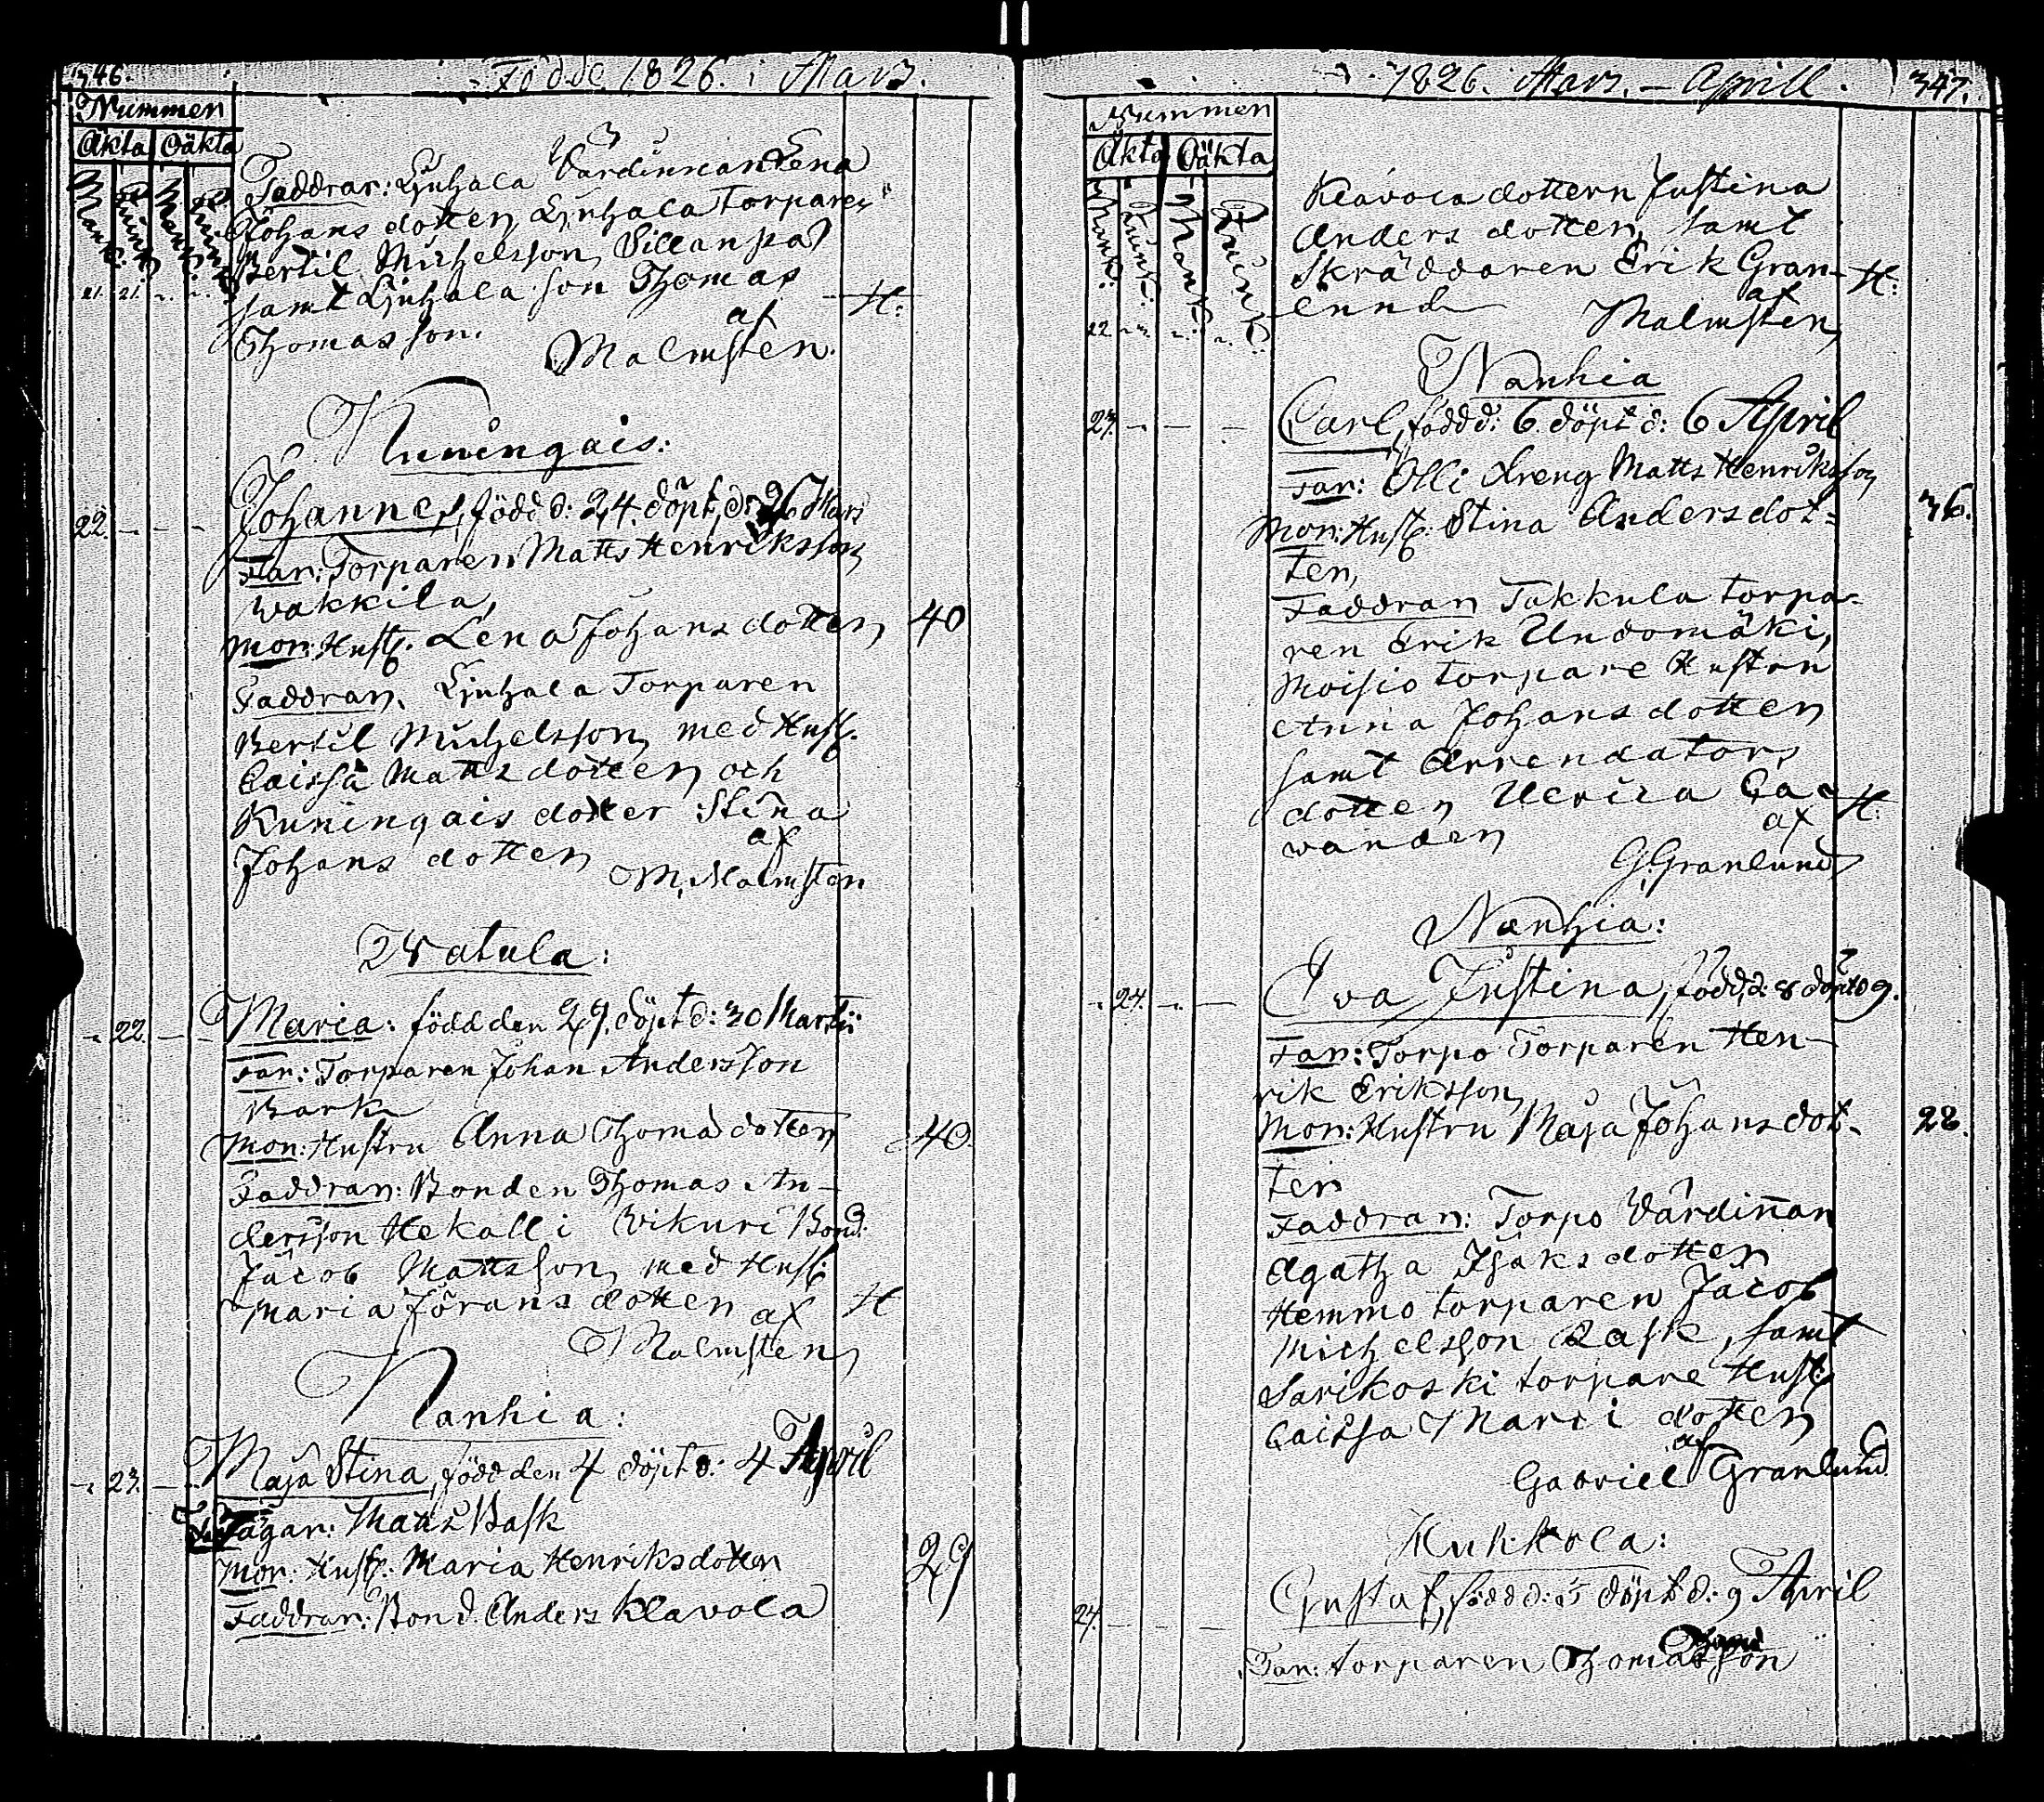 346.
Födde 1826. i Mars.
Nummer
Äkta Oäkta
Mank. Qvink. Mank. Qvink.
Faddrar: Ljuhala Värdinnan Lena
Johans dotter, Ljuhala Torparen
Bertil Michelsson Sillanpä
21. 21. " "
samt Ljuhala son Thomas H.
Thomas son. af
Malmsten.
Kuningais:
22. - - - Johannes, född d: 24. döpt d: 26 Mars
Far: Torparen Matts Henriksson
Wakkila,
Mor: Hust. Lena Johans dotter, 40
Faddrar. Ljuhala Torparen
Bertil Michelsson, med Hust.
Caissa Matts dotter och
Kuningais dotter Stina
Johans dotter af
M. Malmsten
Watula:
- 22. - - Maria: född den 29. döpt d: 30 Martii
Far: Torparen Johan Andersson
Bark
Mor: Hustru Anna Thomæ dotter 40.
Faddrar: Bonden Thomas An-
dersson Hekalli Wikuri Bond:
Jacob Mattsson, med Hust:
Maria Jörans dotter af H
Malmsten
Nanhia:
- 23. - - Maja Stina, född den 4 döpt d: 4 April
Jägar: Matts Bask
Mor: Hust: Maria Henriksdotter 29
Faddrar: Bond. Anders Klavola
1826. Mars. - Aprill. 347.
Nummer
Äkta Oäkta
Mank. Qvink. Mank. Qvink.
Klavola dottern Justina
Anders dotter, samt
Skräddaren Erik Gran- H.
lund af
22 " " " Malmsten,
Nanhia
23. - - - Carl, född d: 6. döpt d: 6 April
Far: Olli dreng Matts Henriksson
Mor: Hust: Stina Andersdot- 36.
ter,
Faddrar Takkula torpa-
ren Erik Undomäki,
Moisio torpare Hustru
Anna Johans dotter
samt Arrendators
dotter Ulrica Ca- H.
wander af
G. Granlund
Nanhia:
- 24. - - Eva Justina, född d: 8 döpt d 9.
Far: Torpo Torparen Hen-
rik Eriksson,
Mor: Hustru Maja Johans dot- 28.
ter
Faddrar: Torpo Värdinnan
Agatha Isaks dotter
Hemmo torparen Jacob
Michelsson Rask, samt
Sarikoski torpare Hust:
Caissa Marci dotter
af
Gabriel Granlund
Kukkola:
24. - - - Gustaf, född d: 5 döpt d: 9 April
Far: torparen Thomas